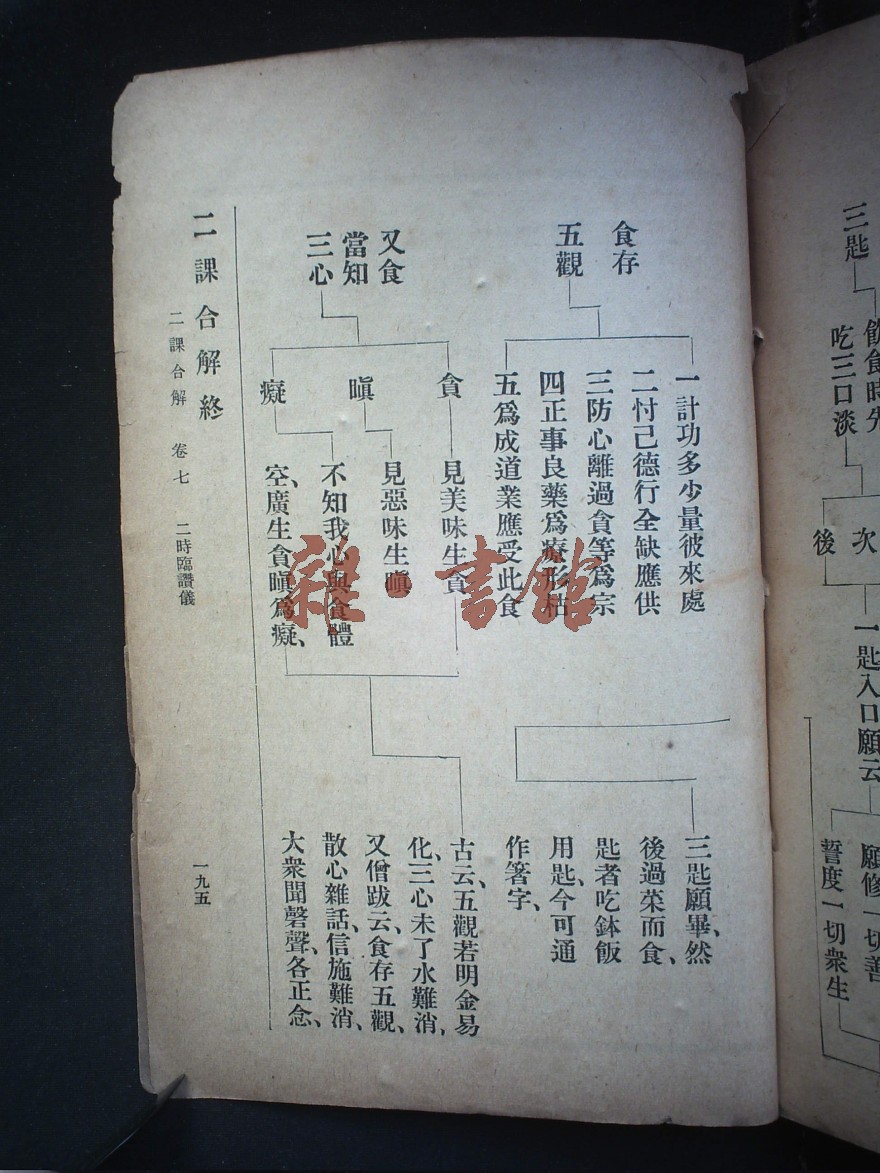 三匙
飲食時先
吃三口淡
次
後
一匙入口願云
願修一切善
誓度一切衆生
食存
五觀
一計功多少量彼來處
二忖己德行全缺應供
三防心離過貪等爲宗
四正事良藥爲療形枯
五爲成道業應受此食
三匙願畢、然
後過菜而食、
匙者吃鉢飯
用匙、今可通
作箸字、
又食
當知
三心
貪
瞋
癡
見美味生貪
見惡味生瞋
不知我心與食體
空、廣生貪瞋爲癡、
古云、五觀若明金易
化、三心未了水難消、
又僧跋云、食存五觀、
散心雜話、信施難消、
大衆聞磬聲、各正念、
二課合解終
二課合解 卷七 二時臨讚儀
一九五
雜·書館